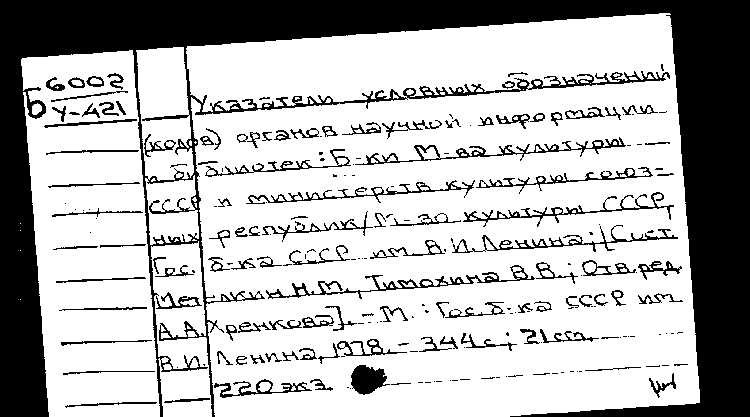 Б 6002
У-421
Указатели условных обозначений
(кодов) органов научной информации
и библиотек: Б-ки М-ва культуры
СССР и министерств культуры союз=
ных республик/М-во культуры СССР,
Гос. б-ка СССР им. В.И. Ленина; [Сост.
Н.М., Тимохина В.В.; Отв. ред.
А.А. Хренкова]. - М.: Гос. б-ка СССР им.
В.И. Ленина, 1978. - 344 с; 21 см.
220 экз.